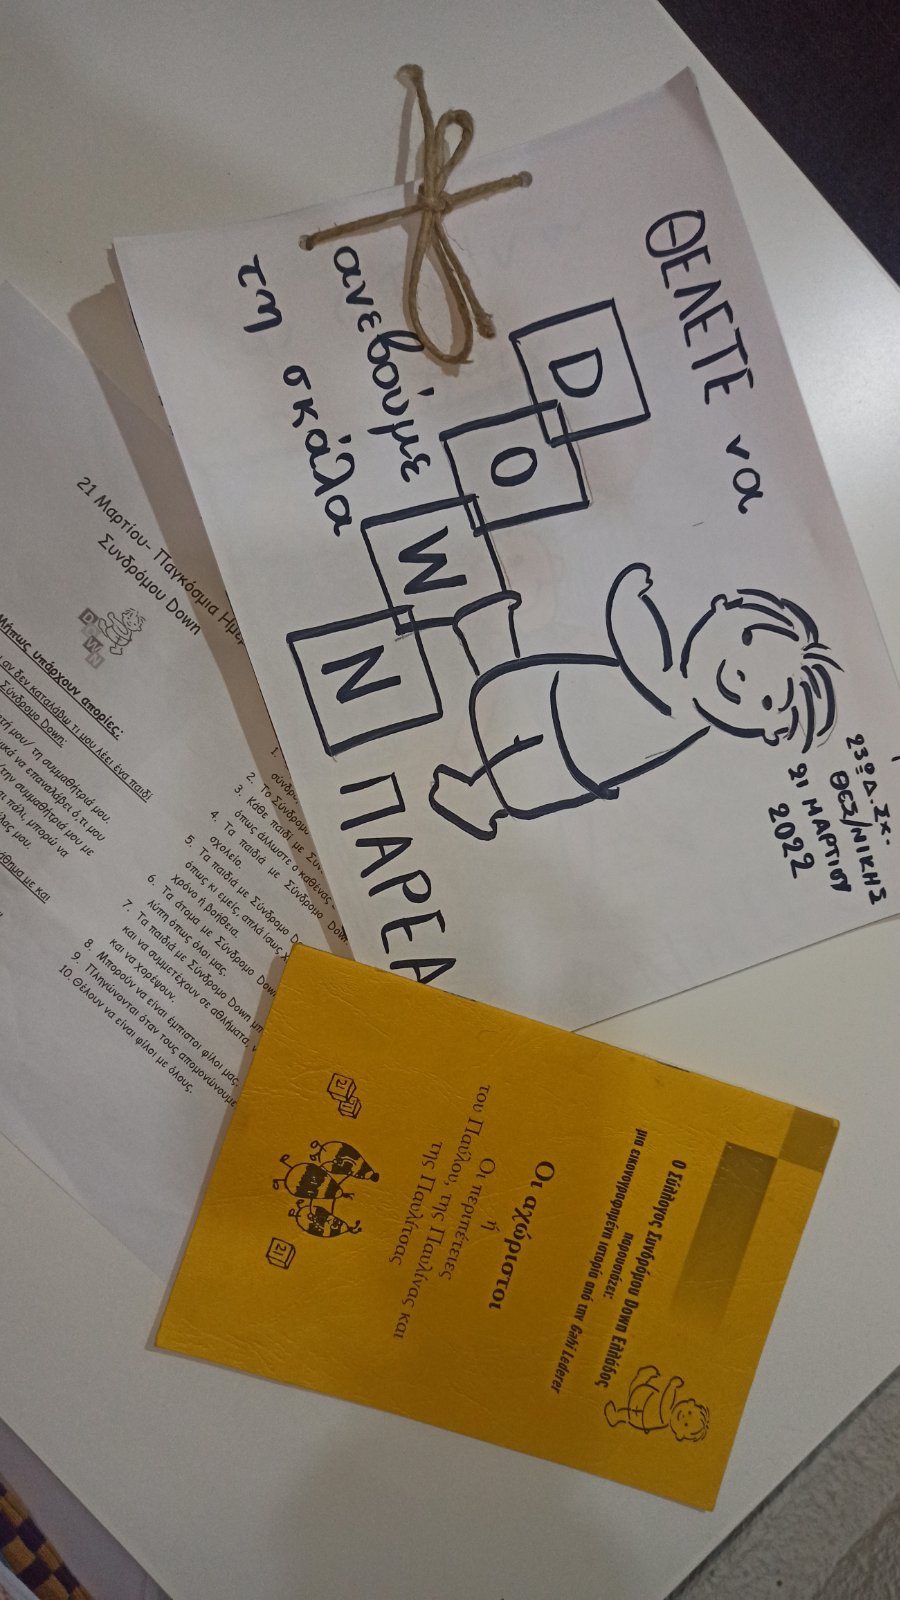 ΘΕΛΕΤΕ να
ανεβούμε
τη σκάλα
D
O
W
N
ΠΑΡΕΑ
23ο Δ.ΣΧ.
ΘΕΣ/ΝΙΚΗΣ
21 ΜΑΡΤΙΟΥ
2022
21 Μαρτίου- Παγκόσμια
Συνδρόμου Down
Μήπως υπάρχουν απορίες;
αν δεν καταλάβω τι μου λέει ένα παιδί
Σύνδρομο Down;
μου/ τη συμμαθήτριά μου,
να επαναλάβει ό,τι μου
συμμαθήτριά μου με
πάλι, μπορώ να
μου.
με και
1.
2. Το Σύνδρομο
3. Κάθε παιδί με
όπως άλλωστε ο καθένας
4. Τα παιδιά με Σύνδρομο Down
σχολείο.
5. Τα παιδιά με Σύνδρομο
όπως κι εμείς, απλά ίσως
χρόνο ή βοήθεια.
6. Τα άτομα με Σύνδρομο Down
λύπη όπως όλοι μας.
7. Τα παιδιά με Σύνδρομο Down
και να συμμετέχουν σε αθλήματα,
και να χορέψουν.
8. Μπορούν να είναι έμπιστοι φίλοι μας.
9. Πληγώνονται όταν τους απομονώνουμε
10. Θέλουν να είναι φίλοι με όλους.
Ο Σύλλογος Συνδρόμου Down Ελλάδος
παρουσιάζει:
μια εικονογραφημένη ιστορία από την Gabi Lederer
Οι αχώριστοι
ή
Οι περιπέτειες
του Παύλου, της Παυλίνας και
της Παυλίτσας
21
21